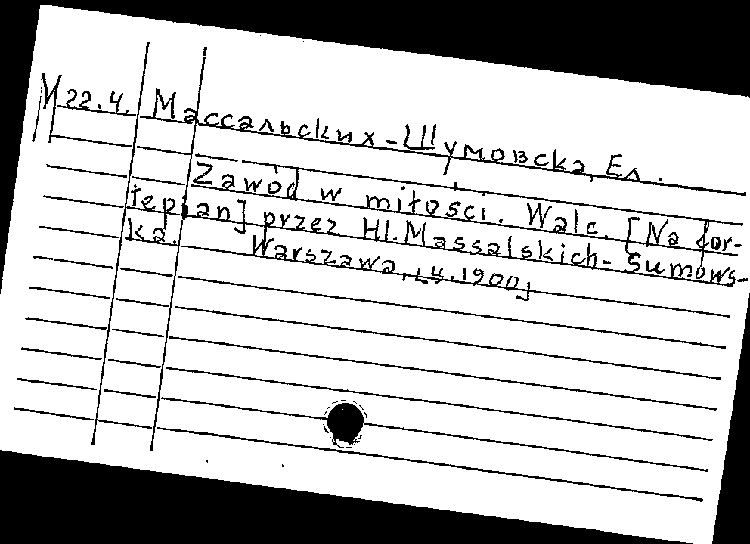 М 22.4. Массальских-Шумовска, Ел.
Zawód w miłości. Walc. [Na for-
tepian] przez Hl. Massalskich-Sumows-
ka. Warszawa, [4.1900]